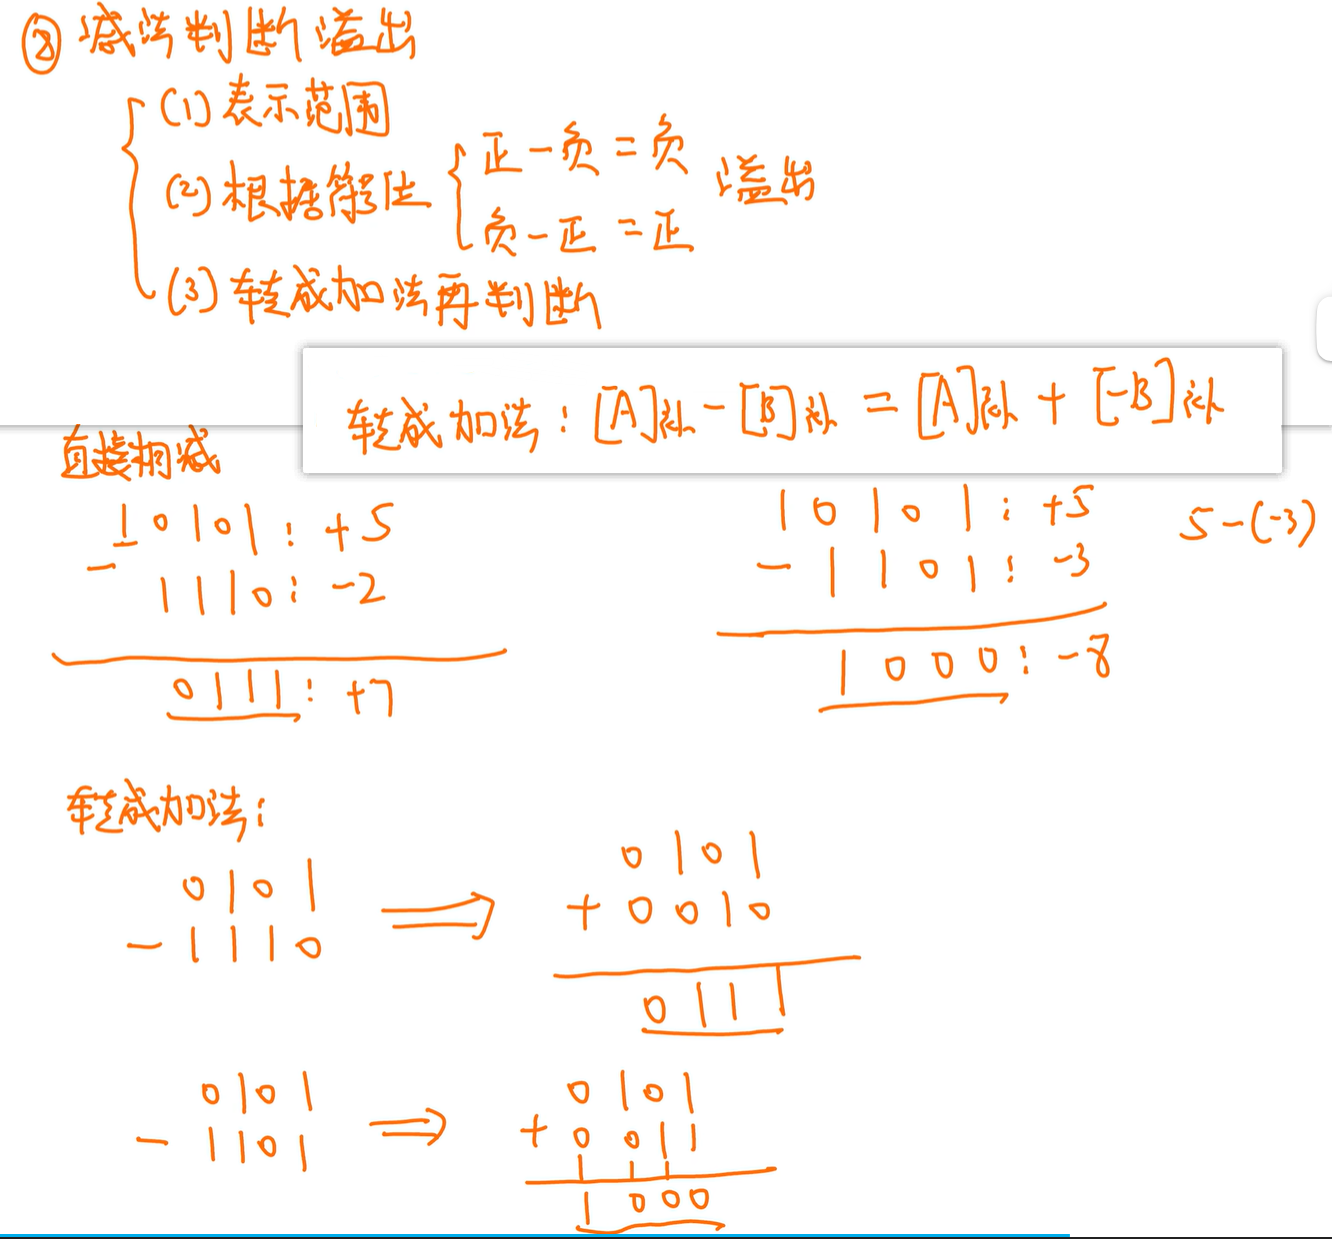 ② 减法判断溢出
(1) 表示范围
(2) 根据符号位
正-负=负
负-正=正
溢出
(3) 转成加法再判断
转成加法:[A]补-[B]补=[A]补+[-B]补
直接相减
10101: +5
- 1110: -2
0111: +7
10101: +5
- 1101: -3
1000: -8
5-(-3)
转成加法:
0101
- 1110
⇒
0101
+ 0010
0111
0101
- 1101
⇒
0101
+ 0011
1 1 1
1000